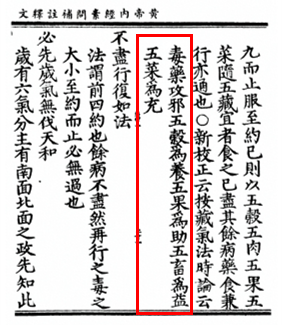 黄帝內經素問補註釋文
九而止服至約已則以五穀五肉五果五
菜隨五藏宜者食之已盡其餘病藥食兼
行亦通也○新校正云按藏氣法時論云
毒藥攻邪五穀爲養五果爲助五畜爲益
五菜爲充
不盡行復如法
法謂前四約也餘病不盡然再行之毒之
大小至約而止必無過也
必先歲氣無伐天和
歲有六氣分主有南面北面之政先知此